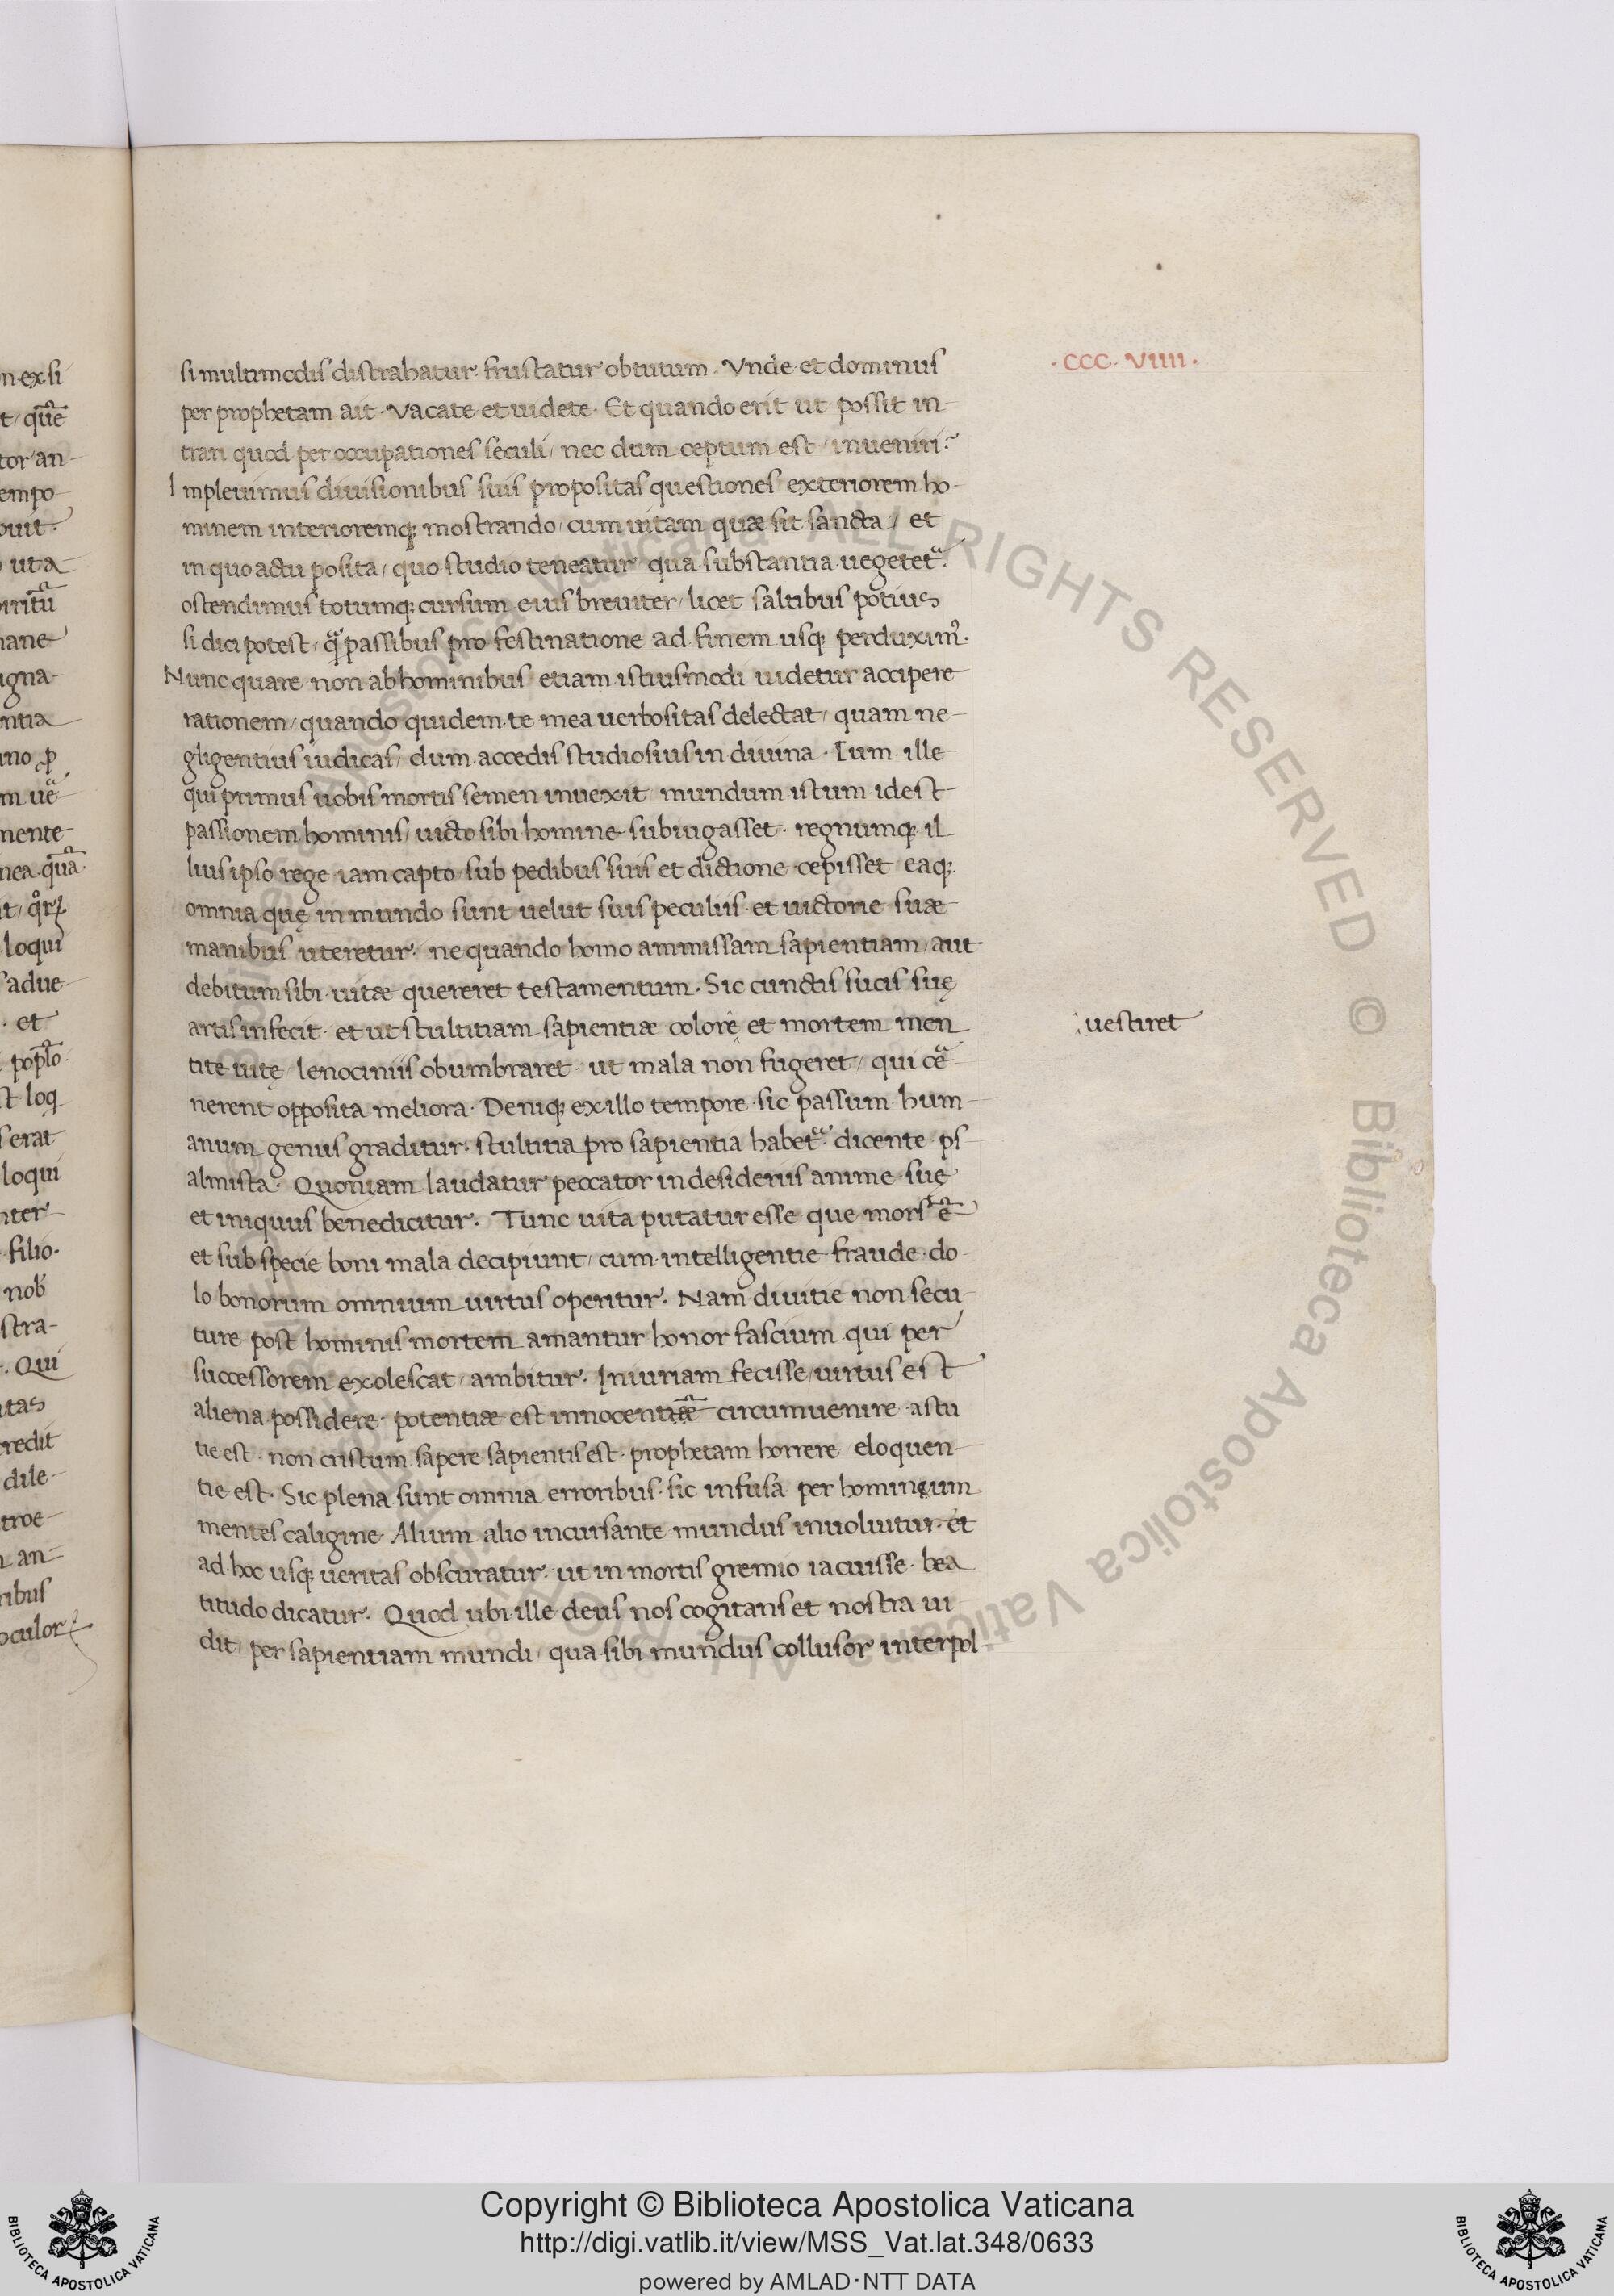 · CCC · VIIII ·
si multimodis distrahatur · frustatur obtutum · Vnde et dominus
per prophetam ait · Vacate et uidete · Et quando erit ut possit in
trari quod per occupationes seculi / nec dum ceptum est / inueniri?
Impleuimus diuisionibus suis propositas questiones exteriorem ho-
minem interioremq; mostrando / cum uitam quæ sit sancta / et
in quo actu posita / quo studio teneatur qua substantia uegetet᷑.
ostendimus totumq; cursum eius breuiter / licet saltibus potius
si dici potest / qᷓ passibus pro festinatione ad finem usq; perduximꝰ.
Nunc quare non ab hominibus etiam istiusmodi uidetur accipere
rationem / quando quidem te mea uerbositas delectat / quam ne-
gligentius iudicas / dum accedis studiosius in diuina · Cum ille
qui primus uobis mortis semen inuexit mundum istum idest
passionem hominis / uicto sibi homine subiugasset · regnumq; il
lius ipso rege iam capto sub pedibus suis et dictione cepisset eaq;
omnia quę in mundo sunt uelut suis peculiis et uictorie suæ
manibus uteretur · ne quando homo ammissam sapientiam / aut
debitum sibi uitæ quereret testamentum · Sic cunctis sucis suę
artis infecit · et ut stultitiam sapientiæ colore et mortem men
uestiret
tite uitę lenociniis obumbraret · ut mala non fugeret / qui cẽ-
nerent opposita meliora · Deniq; ex illo tempore sic passum hum-
anum genus graditur · stultitia pro sapientia habet᷑ · dicente ps
almista · Quoniam laudatur peccator in desideriis anime suę
et iniquus benedicitur · Tunc uita putatur esse que mors ẽ
et sub specie boni mala decipiunt / cum intelligentie fraude do
lo bonorum omnium uirtus operitur · Nam diuitie non secu-
ture post hominis mortem amantur honor fascium qui per
successorem exolescat / ambitur · Iniuriam fecisse / uirtus est
aliena possidere · potentiæ est innocentiæ circumuenire astu
tie est · non cristum sapere sapientis est · prophetam horrere eloquen
tie est · Sic plena sunt omnia erroribus · sic infusa per hominęum
mentes caligine · Alium alio incursante mundus inuoluitur · et
ad hoc usq; ueritas obscuratur · ut in mortis gremio iacuisse · bea
titudo dicatur · Quod ubi ille deus nos cogitans et nostra ui
dit / per sapientiam mundi / qua sibi mundus collusor interpol
n ex si
tor an-
empo
ut a
nane
igna-
ntia
mente
loqui
adue
et
erat
loqui
nter
filio.
nob
stra-
. Qui
itas
credit
dile-
troe
an-
ribus
oculor
ALL RIGHTS RESERVED © Biblioteca Apostolica Vaticana
Copyright © Biblioteca Apostolica Vaticana
http://digi.vatlib.it/view/MSS_Vat.lat.348/0633
powered by AMLAD·NTT DATA
BIBLIOTECA APOSTOLICA VATICANA
BIBLIOTECA APOSTOLICA VATICANA